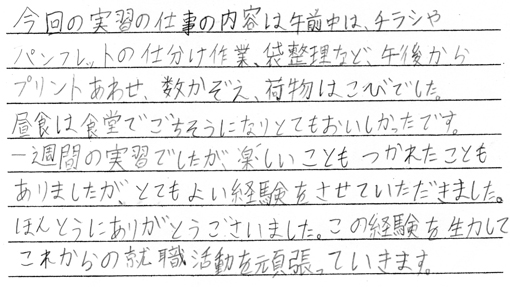 今回の実習の仕事の内容は午前中は、チラシや
パンフレットの仕分け作業、袋整理など、午後から
プリントあわせ、数かぞえ、荷物はこびでした。
昼食は食堂でごちそうになりとてもおいしかったです。
一週間の実習でしたが楽しいこともつかれたことも
ありましたが、とてもよい経験をさせていただきました。
ほんとうにありがとうございました。この経験を生かして
これからの就職活動を頑張っていきます。